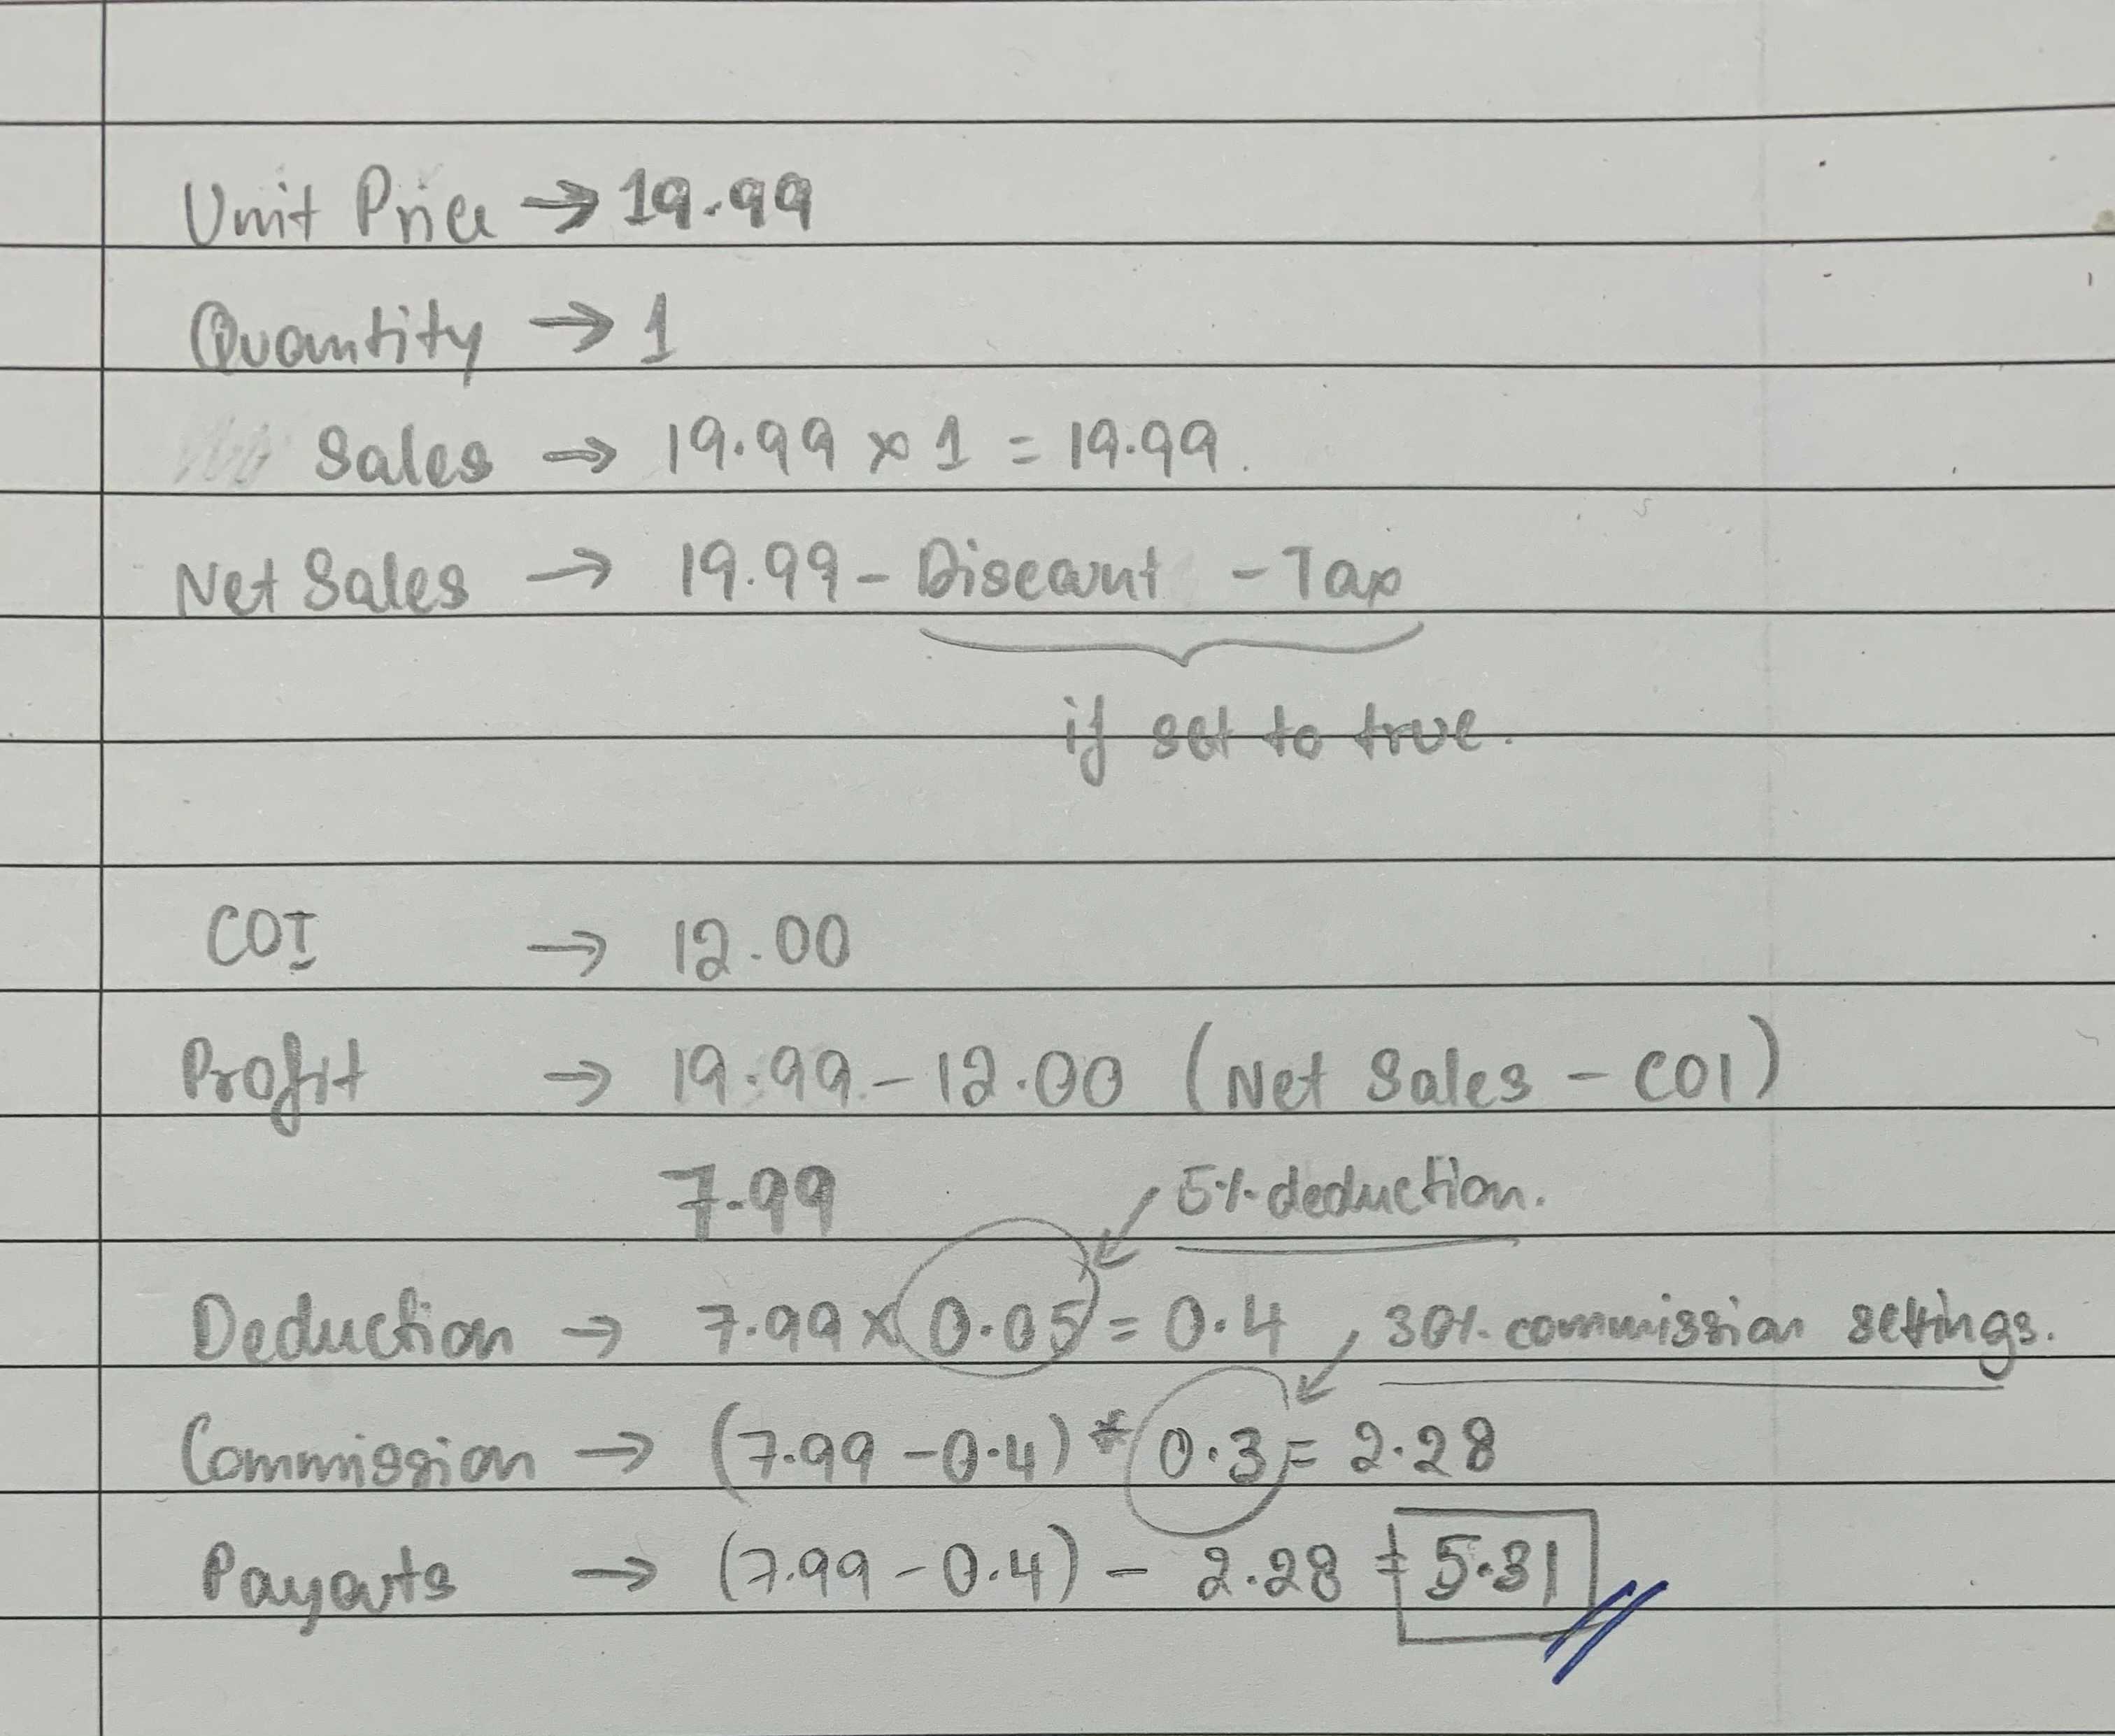 Unit Price → 19.99
Quantity → 1
Sales → 19.99 × 1 = 19.99.
Net Sales → 19.99 - Discount - Tax
if set to true.
COI → 12.00
Profit → 19.99 - 12.00 (Net Sales - COI)
7.99 5% deduction.
Deduction → 7.99 × 0.05 = 0.4 30% commission settings.
Commission → (7.99 - 0.4) * 0.3 = 2.28
Payouts → (7.99 - 0.4) - 2.28 = 5.31